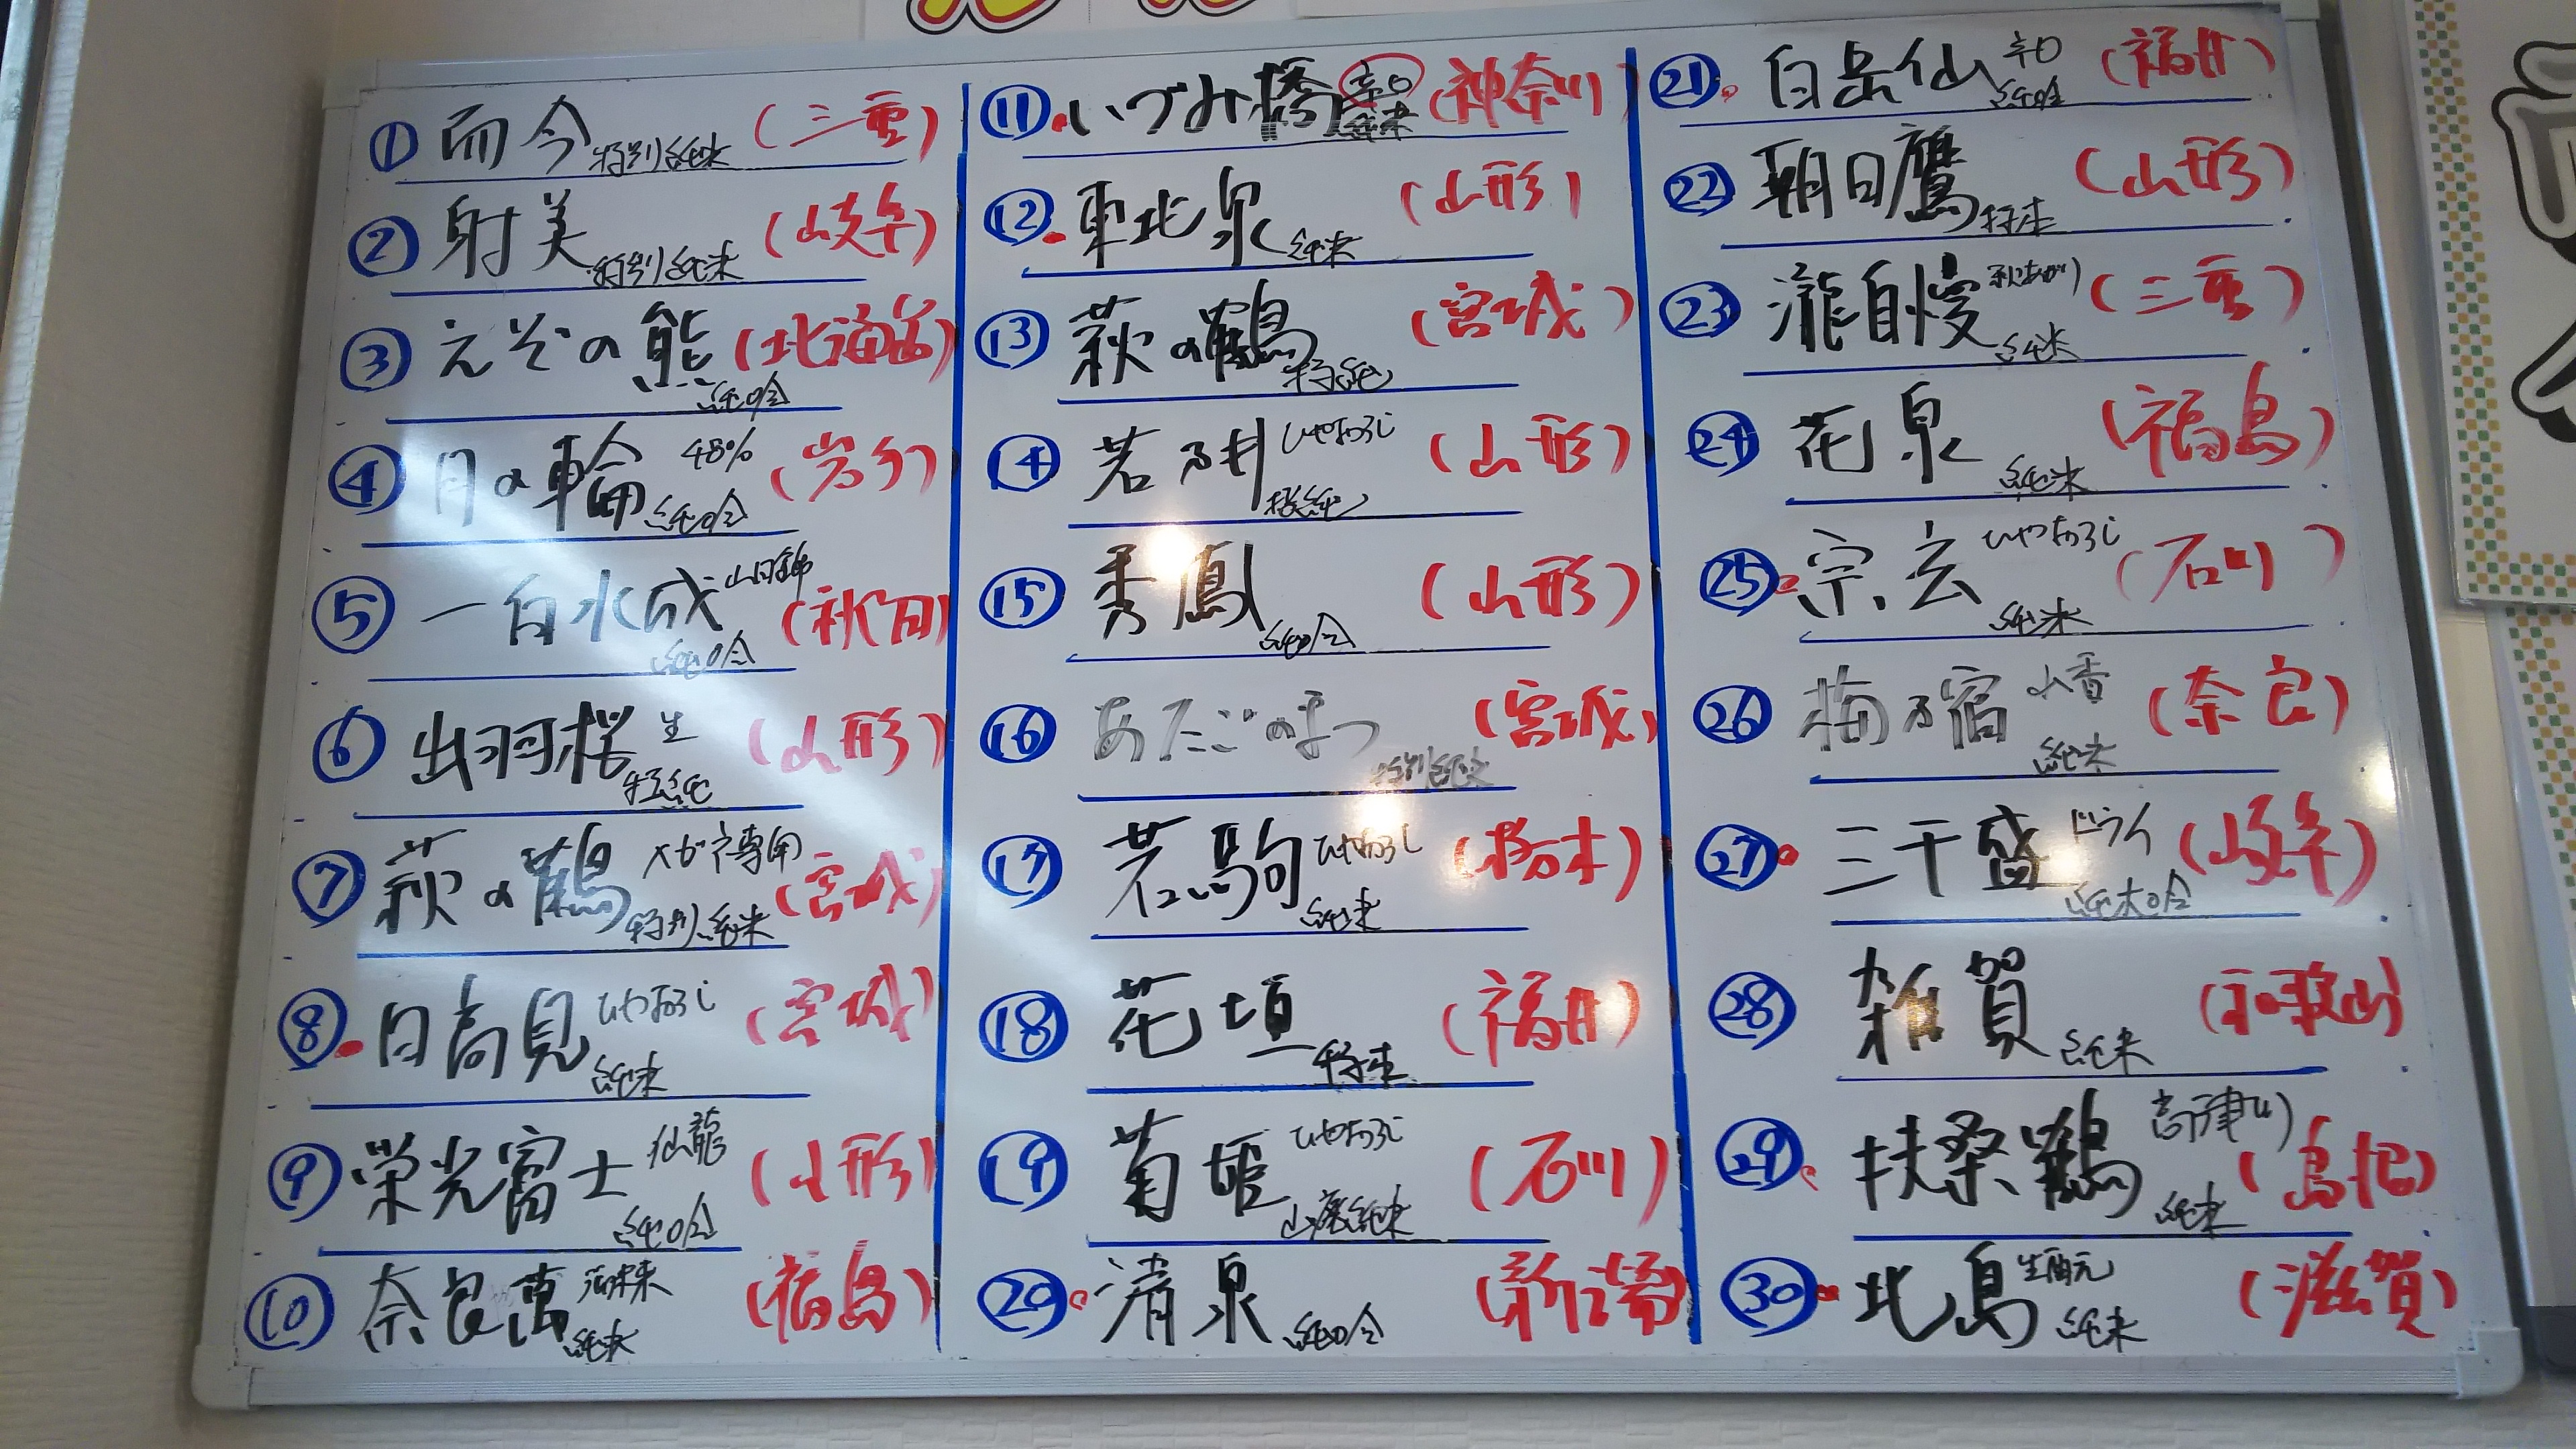 ① 而今 特別純米 (三重)
② 射美 特別純米 (岐阜)
③ えぞの熊 純吟 (北海道)
④ 月の輪 48% 純吟 (岩手)
⑤ 一白水成 山田錦 純吟 (秋田)
⑥ 出羽桜 生 特純 (山形)
⑦ 萩の鶴 メガネ専用 特別純米 (宮城)
⑧ 日高見 ひやおろし 純米 (宮城)
⑨ 栄光冨士 仙龍 純吟 (山形)
⑩ 奈良萬 純米 (福島)
⑪ いづみ橋 辛口 純米 (神奈川)
⑫ 東北泉 純米 (山形)
⑬ 萩の鶴 特純 (宮城)
⑭ 若乃井 ひやおろし 特純 (山形)
⑮ 秀鳳 純吟 (山形)
⑯ あたごのまつ 特別純米 (宮城)
⑰ 若駒 ひやおろし 純米 (栃木)
⑱ 花垣 特本 (福井)
⑲ 菊姫 ひやおろし 山廃純米 (石川)
⑳ 清泉 純吟 (新潟)
㉑ 白岳仙 辛口 純吟 (福井)
㉒ 朝日鷹 特本 (山形)
㉓ 瀧自慢 秋あがり 純米 (三重)
㉔ 花泉 純米 (福島)
㉕ 宗玄 ひやおろし 純米 (石川)
㉖ 梅乃宿 山香 純米 (奈良)
㉗ 三千盛 ドライ 純米吟 (岐阜)
㉘ 雑賀 純米 (和歌山)
㉙ 扶桑鶴 高津川 純米 (島根)
㉚ 北島 生酛 純米 (滋賀)